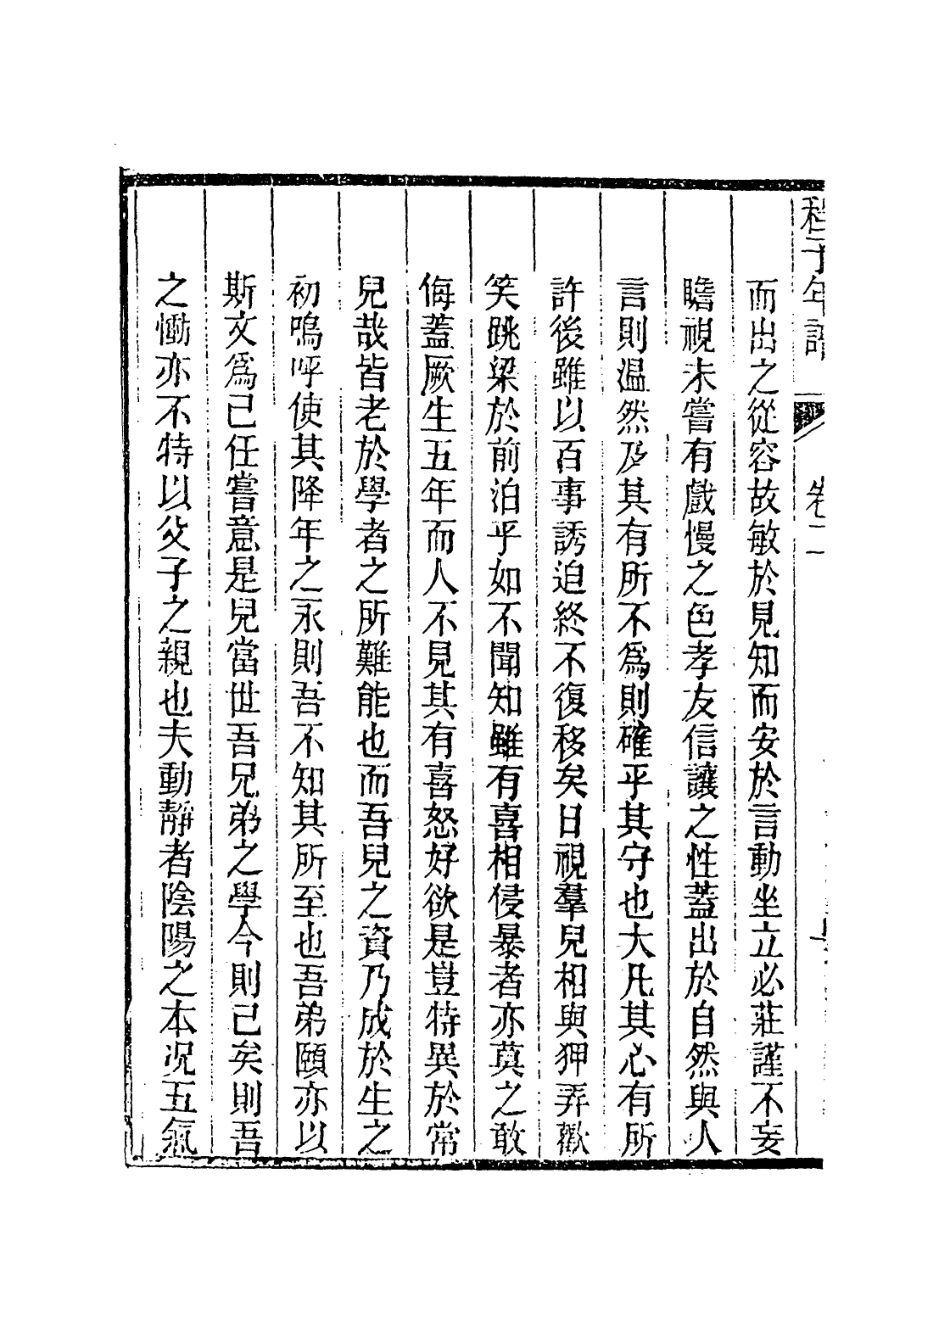 程子年譜 卷二
而出之從容故敏於見知而安於言動坐立必莊謹不妄
瞻視未嘗有戲慢之色孝友信讓之性蓋出於自然與人
言則温然及其有所不爲則確乎其守也大凡其心有所
許後雖以百事誘迫終不復移矣日視羣兒相與狎弄歡
笑跳梁於前泊乎如不聞知雖有喜相侵暴者亦莫之敢
侮蓋厥生五年而人不見其有喜怒好欲是豈特異於常
兒哉皆老於學者之所難能也而吾兒之資乃成於生之
初嗚呼使其降年之永則吾不知其所至也吾弟頤亦以
斯文爲己任嘗意是兒當世吾兄弟之學今則已矣則吾
之慟亦不特以父子之親也夫動靜者陰陽之本况五氣